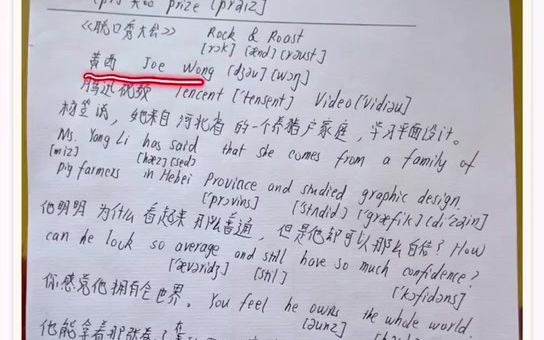 prize [praiz]
《脱口秀大会》 Rock & Roast
[rɔk] [ænd] [rəust]
黄西 Joe Wong [dʒəu] [wɔŋ]
腾迅视频 Tencent ['tensent] Video [vidiəu]
杨笠 说，她来自河北省的一个养猪户家庭，学习平面设计。
Ms. Yang Li has said that she comes from a family of
[miz] [hæz] [sed]
pig farmers in Hebei Province and studied graphic design.
['prɔvins] ['stʌdid] ['græfik] [di'zain]
他明明为什么看起来那么普通，但是他却可以那么自信？How
can he look so average and still have so much confidence?
['ævəridʒ] [stil] ['kɔfidəns]
你感觉他拥有全世界。You feel he owns the whole world.
[əunz]
他能拿着那张卷子